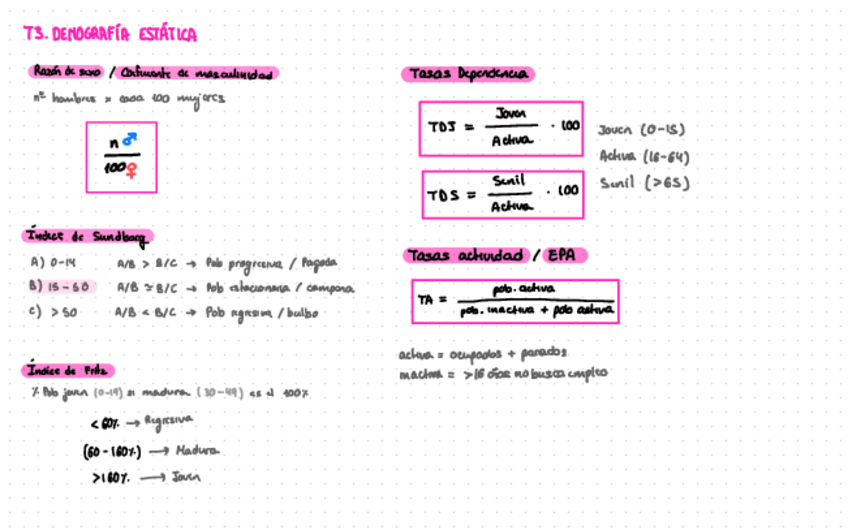 T3. DEMOGRAFÍA ESTÁTICA
Razón de sexo / Coeficiente de masculinidad
nº hombres x cada 100 mujeres
n ♂
100 ♀
Índice de Sundbarg
A) 0-14 A/B > B/C → Pob progresiva / Pagoda
B) 15-50 A/B ≃ B/C → Pob estacionaria / campana
C) >50 A/B < B/C → Pob regresiva / bulbo
Índice de Fritz
% Pob joven (0-19) si madura (30-49) es el 100%
< 60% → Regresiva
(60-160%) → Madura
>160% → Joven
Tasas Dependencia
TDJ = Joven / Activa · 100
TDS = Senil / Activa · 100
Joven (0-15)
Activa (16-64)
Senil (>65)
Tasas actividad / EPA
TA = pob. activa / pob. inactiva + pob activa
activa = ocupados + parados
inactiva = >16 años no busca empleo